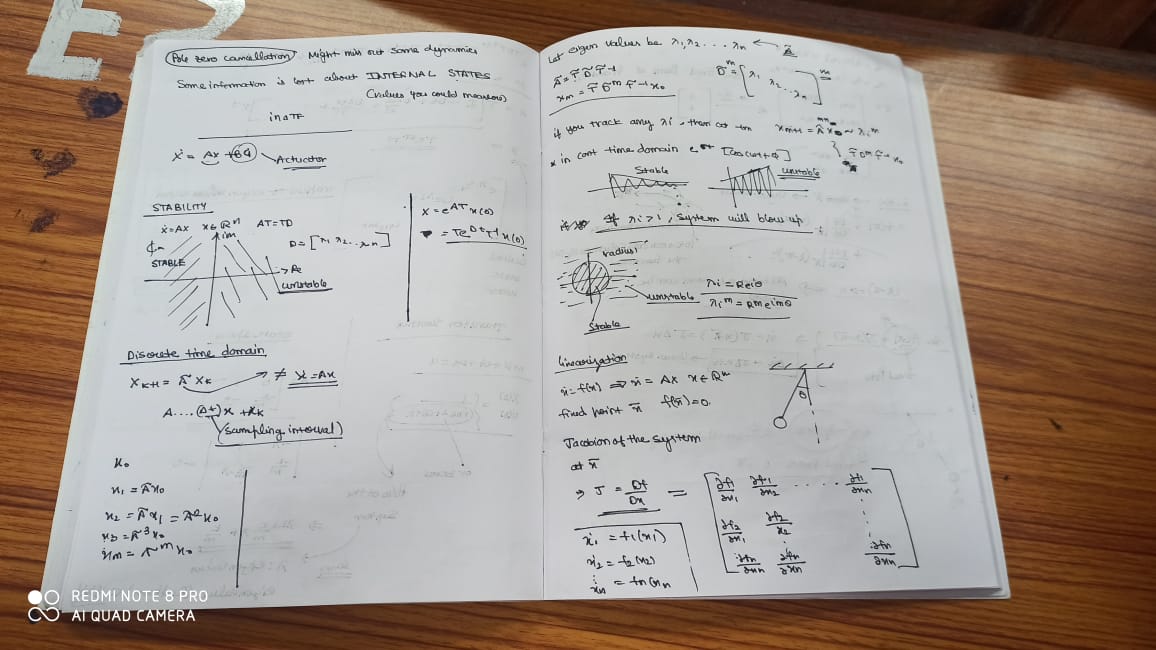 Pole zero cancellation, Might miss out some dynamics
Some information is lost about INTERNAL STATES
(values you could measure)
in a TF
ẋ = Ax + Bu
Actuator
STABILITY
ẋ = Ax x ∈ ℝⁿ AT = TD
Im
D = [λ1 λ2 ... λn]
STABLE
Re
Unstable
x = e^AT x(0)
= Te^Dt T⁻¹ x(0)
Discrete time domain
x_K+1 = Ã x_K ≠ ẋ = Ax
A.... (Δt)x + x_K
(sampling interval)
x₀
x₁ = Ãx₀
x₂ = Ãx₁ = Ã²x₀
x₃ = Ã³x₀
x_m = Ã^m x₀
Let eigen values be λ1, λ2 ... λn ← Ã
Ã = T̃ D̃ T̃⁻¹
D̃^m = [λ1 λ2 ... λn]^m
x_m = T̃ D̃^m T̃⁻¹ x₀
if you track any λi, then at
x_m+1 = Ã x₀ ~ λi^m
T̃ D^m T̃⁻¹ x₀
* in cont time domain
Stable
Unstable
If λi > 1, system will blow up
radius 1
unstable
Stable
λi = Re^iθ
λi^m = R^m e^imθ
Linearization
ẋ = f(x) ⇒ ẋ = Ax x ∈ ℝⁿ
fixed point x̄ f(x̄) = 0.
θ
Jacobian of the system
at x̄
⇒ J = Df/Dx = [∂f1/∂x1 ∂f1/∂x2 ...... ∂f1/∂xn
∂f2/∂x1 ∂f2/x2
∂fn/∂xn ∂fn/∂xn ∂fn/∂xn]
ẋ1 = f1(x1)
ẋ2 = f2(x2)
ẋn = fn(xn
REDMI NOTE 8 PRO
AI QUAD CAMERA